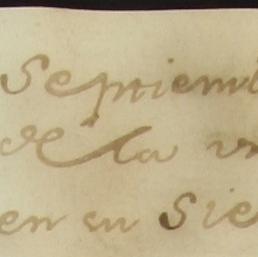 Septiemb
de la
en su Sie